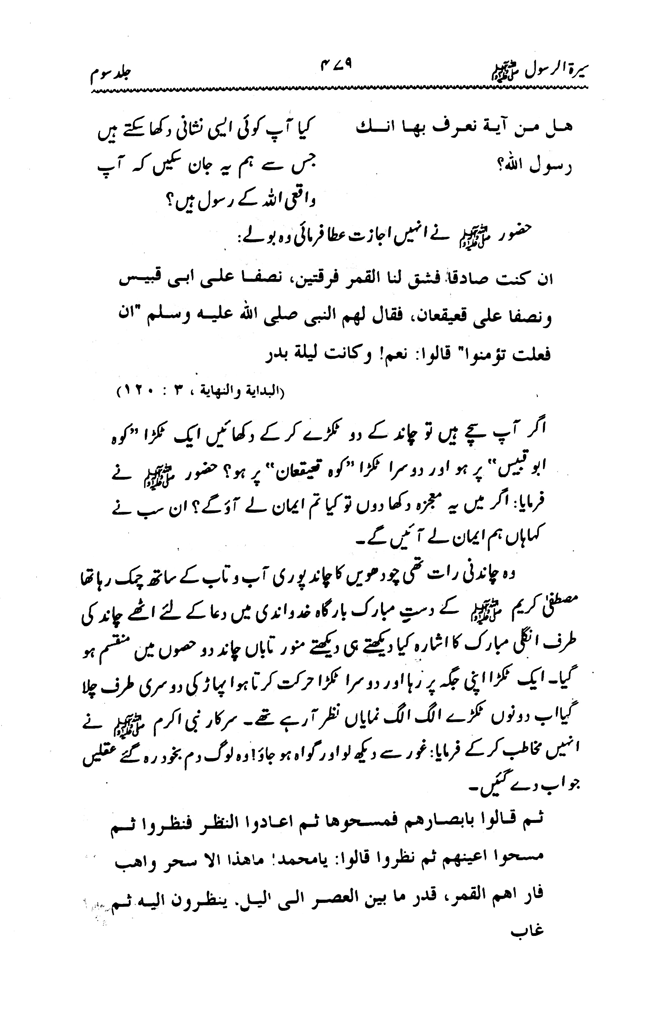 سیرۃ الرسول ﷺ ۴۷۹ جلد سوم
هل من آية نعرف بها انك
رسول الله؟
کیا آپ کوئی ایسی نشانی دکھا سکتے ہیں
جس سے ہم یہ جان سکیں کہ آپ
واقعی اللہ کے رسول ہیں؟
حضور ﷺ نے انہیں اجازت عطا فرمائی وہ بولے:
ان كنت صادقا فشق لنا القمر فرقتين، نصفا على ابى قبيس
ونصفا على قعيقعان، فقال لهم النبى صلى الله عليه وسلم "ان
فعلت تؤمنوا" قالوا: نعم! وكانت ليلة بدر
(البداية والنهاية، ۳ : ۱۲۰)
اگر آپ سچے ہیں تو چاند کے دو ٹکڑے کر کے دکھائیں ایک ٹکڑا ”کوہ
ابو قبیس“ پر ہو اور دوسرا ٹکڑا ”کوہ قعیقعان“ پر ہو؟ حضور ﷺ نے
فرمایا: اگر میں یہ معجزہ دکھا دوں تو کیا تم ایمان لے آؤ گے؟ ان سب نے
کہا ہاں ہم ایمان لے آئیں گے۔
وہ چاندنی رات تھی چودھویں کا چاند پوری آب و تاب کے ساتھ چمک رہا تھا
مصطفیٰ کریم ﷺ کے دست مبارک بارگاہ خداوندی میں دعا کے لئے اٹھے چاند کی
طرف انگلی مبارک کا اشارہ کیا دیکھتے ہی دیکھتے منور تاباں چاند دو حصوں میں منقسم ہو
گیا۔ ایک ٹکڑا اپنی جگہ پر رہا اور دوسرا ٹکڑا حرکت کرتا ہوا پہاڑ کی دوسری طرف چلا
گیا اب دونوں ٹکڑے الگ الگ نمایاں نظر آ رہے تھے۔ سرکار نبی اکرم ﷺ نے
انہیں مخاطب کر کے فرمایا: غور سے دیکھ لو اور گواہ ہو جاؤ! وہ لوگ دم بخود رہ گئے عقلیں
جواب دے گئیں۔
ثم قالوا بابصارهم فمسحوها ثم اعادوا النظر فنظروا ثم
مسحوا اعينهم ثم نظروا قالوا: يامحمد! ماهذا الا سحر واهب
فار اهم القمر، قدر ما بين العصر الى اليل. ينظرون اليه ثم
غاب